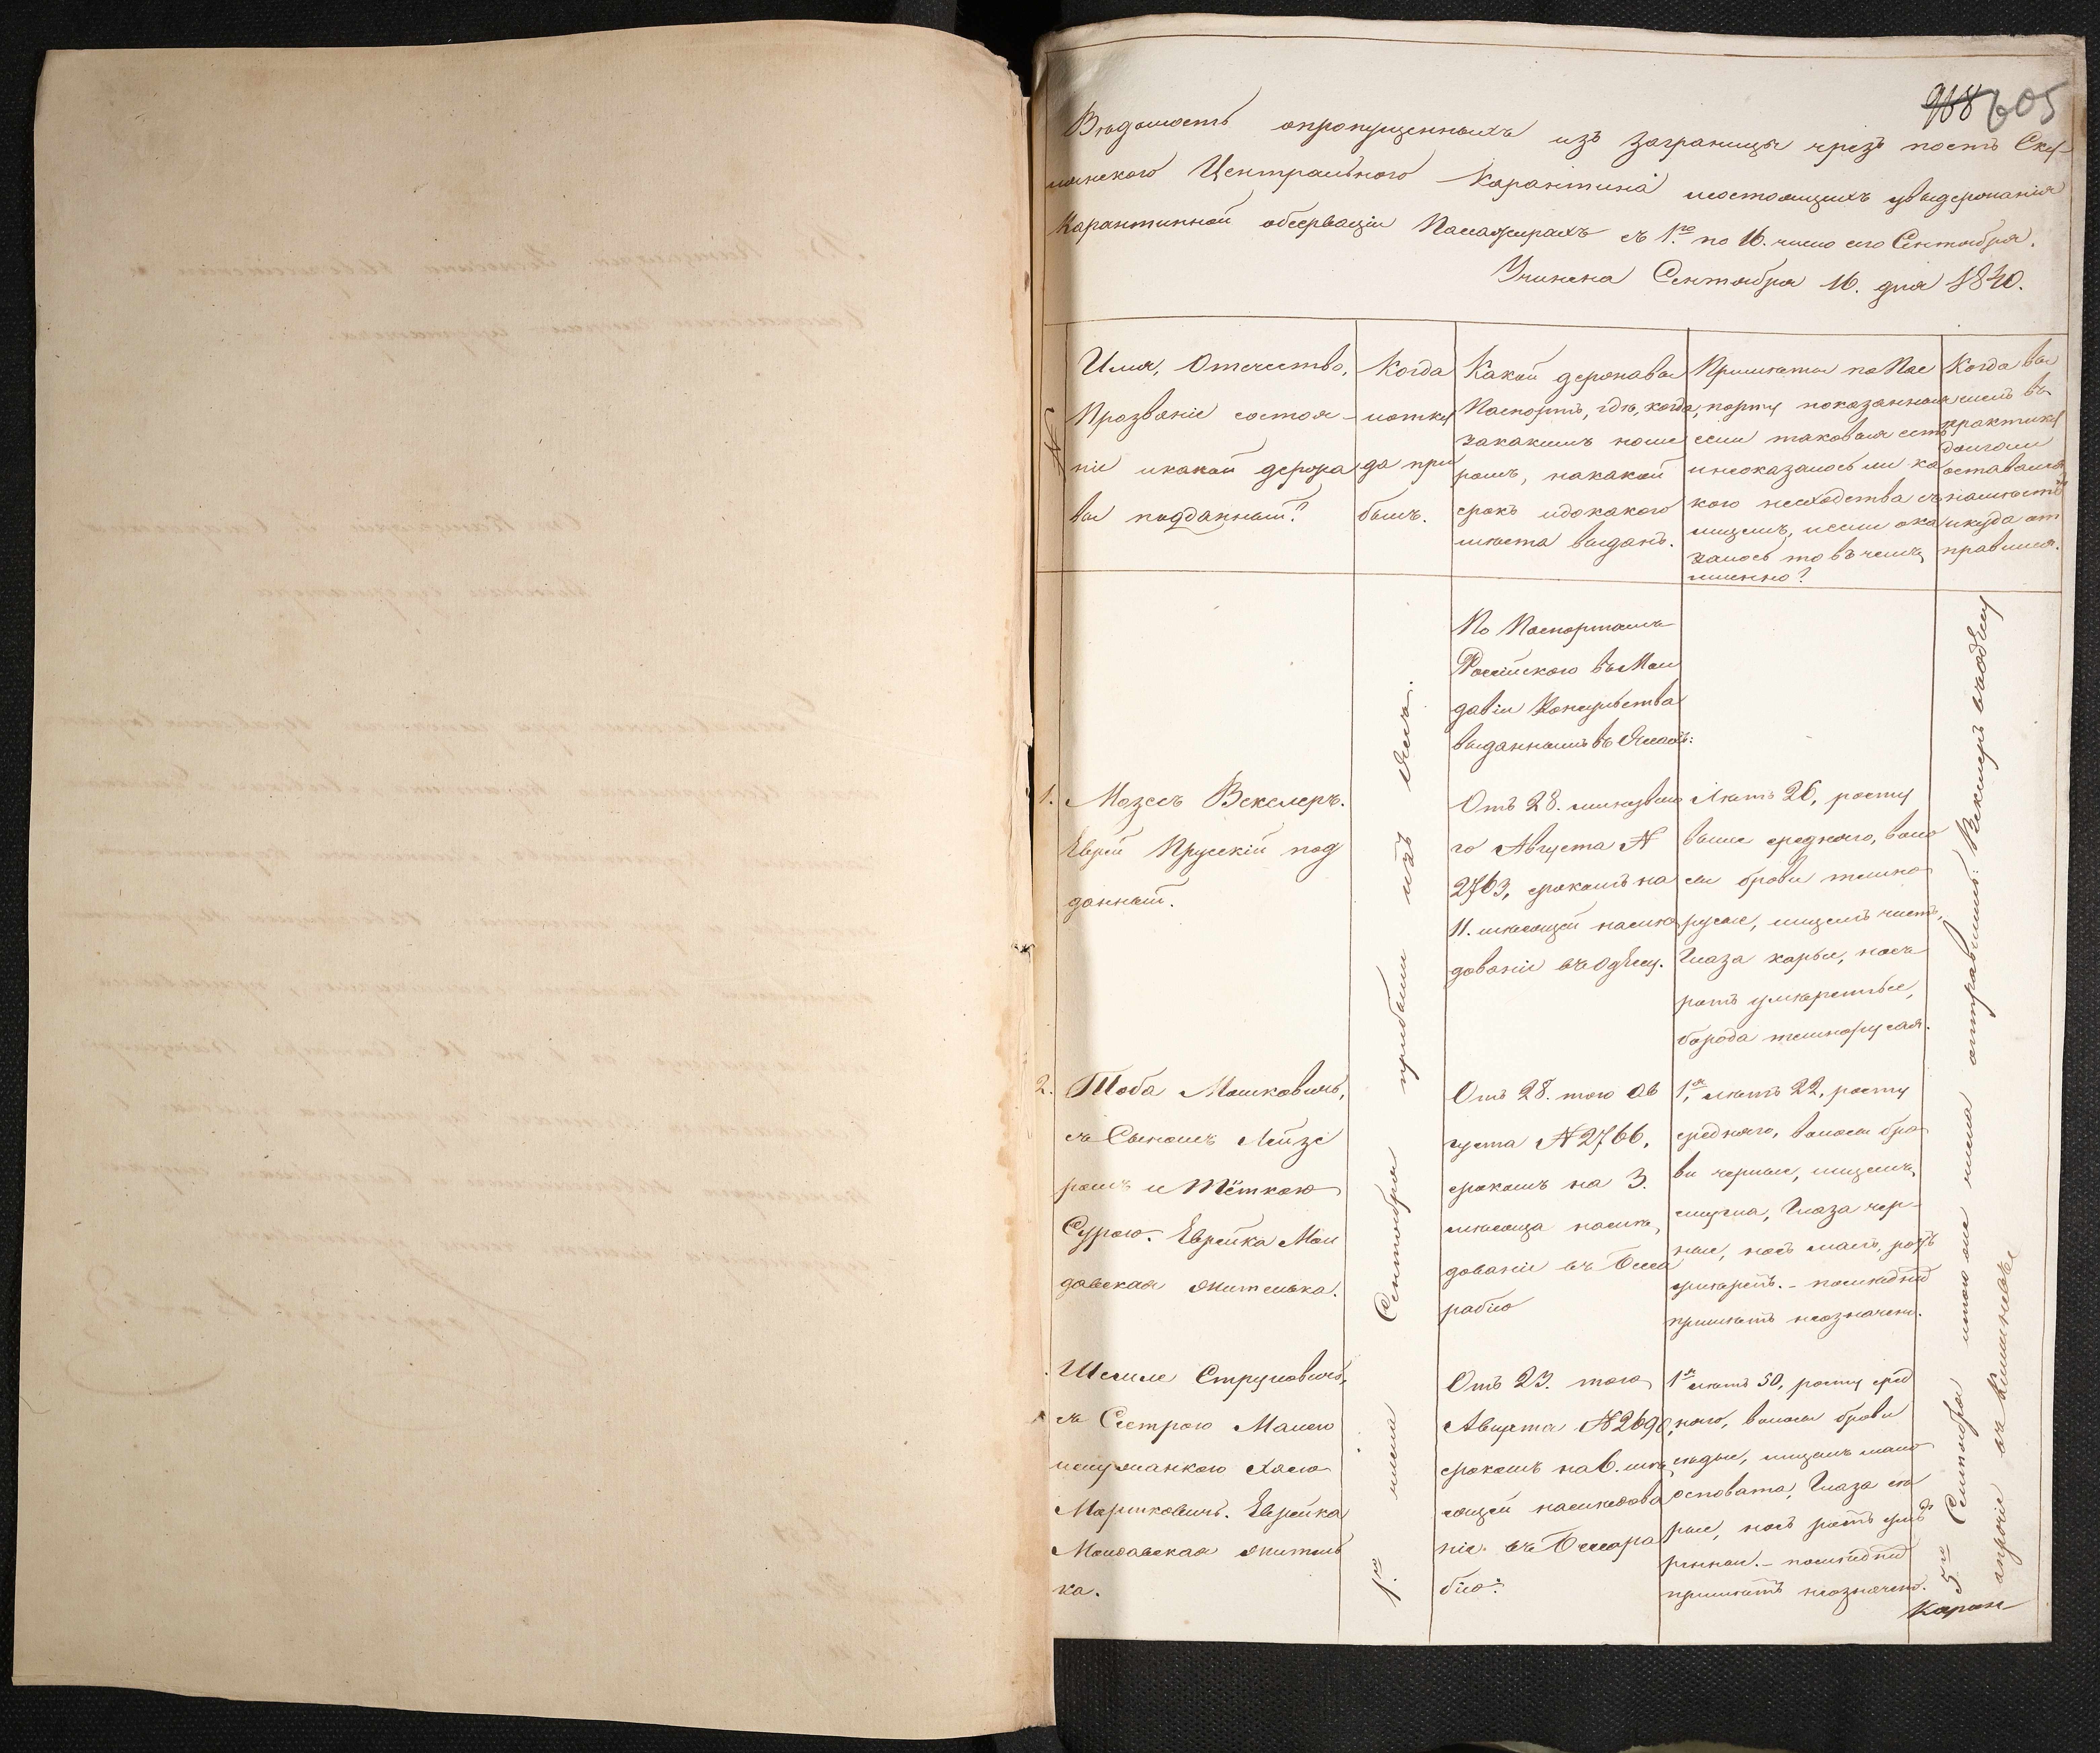 968 605
Вѣдомость опропущенныхъ изъ Заграницы чрезъ постъ Ску-
лянского Центрального Карантина состоящихъ увыдержанія
Карантинной обсерваціи Пассажирахъ съ 1го по 16. число сего Сентября.
Учинена Сентября 16. дня 1840.
№
Имя, Отечество,
Прозваніе состоя-
ніе икакой держа
вы подданный?
Когда
иотку
да при
былъ.
Какой державы
Паспортъ, гдѣ, когда,
закакимъ номе
ромъ, накакой
срокъ идокакого
мѣста выданъ.
Примѣты поПас
порту показанныя
если таковыя есть
инеоказалось ли ка
кого несходства съ
лицемъ, иесли ока
залось то въ чемъ
именно?
Когда вы
пущенъ въ
практику
долголи
оставался
намѣстѣ
икуда от
правился.
По Паспортамъ
Россійского въ Мол
давіи Консульства
выданнымъ въ Яссахъ:
1. Мозесъ Векслеръ.
Еврей Прусскій под
данный.
Отъ 28. минувша
го Августа №
2763, срокомъ на
11. мѣсяцей наслѣ
дованіе въ Одессу.
Лѣтъ 26, росту
выше средняго, воло
сы брови темно
русые, лицемъ чистъ,
Глаза карые, носъ
ротъ умѣренные,
борода темнорусая.
2. Тоба Мошковичъ,
съ Сыномъ Лейзе
ромъ и Тёткою
Сурою. Еврейка Мол
давская жителька.
Отъ 28. того Ав
густа №2766,
срокомъ на 3.
мѣсяца наслѣ
дованіе въ Бесса
рабію
1я, лѣтъ 22, росту
средняго, волосы бро
ви черные, лицемъ
смугла, Глаза чер-
ные, носъ малъ, ротъ
умѣренъ. - послѣдній
примѣтъ неозначено.
Шемле Струловичъ,
съ Сестрою Малею
ислужанкою Хаею
Мариковичъ. Еврейка
Молдавская житель
ка.
Отъ 23. того
Августа №2690,
срокомъ на 6. мѣ
сяцей наслѣдова
ніе въ Бессара
бію.
1я лѣтъ 50, росту сред
няго, волосы брови
сѣдые, лицемъ мало
осповата, Глаза сѣ
рые, носъ ротъ умѣ
ренные. - послѣдній
примѣтъ неозначено.
1го числа Сентября прибыли изъ Яссъ.
5го Сентября итого же числа отправились: Векслеръ въ Одессу
апрочіе въ Кишиневъ
Каран-